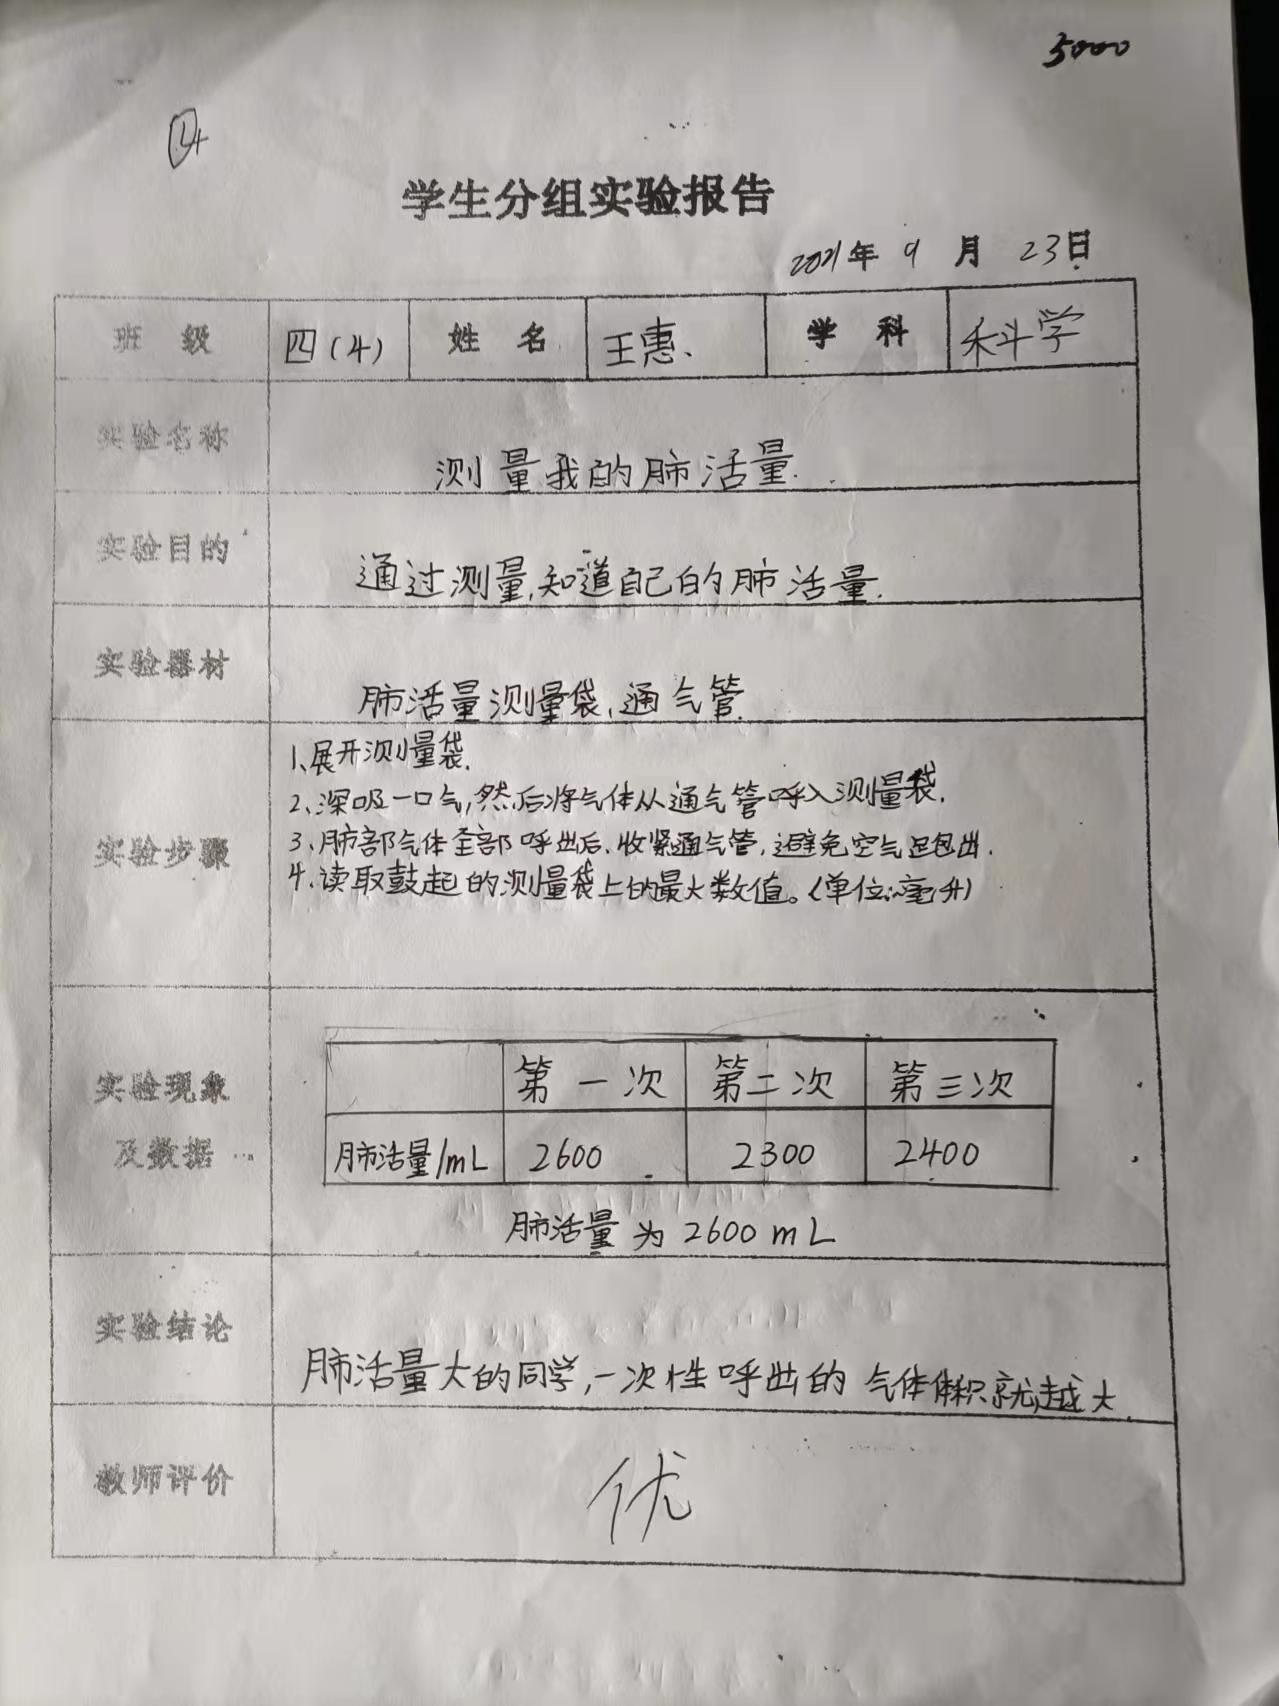 5000
④
学生分组实验报告
2021年 9 月 23日
班 级 四(4) 姓 名 王惠、 学 科 科学
实验名称 测量我的肺活量.
实验目的 通过测量,知道自己的肺活量.
实验器材 肺活量测量袋、通气管.
实验步骤
1、展开测量袋.
2、深吸一口气,然后将气体从通气管呼入测量袋.
3、肺部气体全部呼出后、收紧通气管,避免空气跑出.
4、读取鼓起的测量袋上的最大数值。(单位:毫升)
实验现象
及数据
第一次 第二次 第三次
肺活量/mL 2600 2300 2400
肺活量为2600mL
实验结论 肺活量大的同学,一次性呼出的气体体积就越大.
教师评价 优